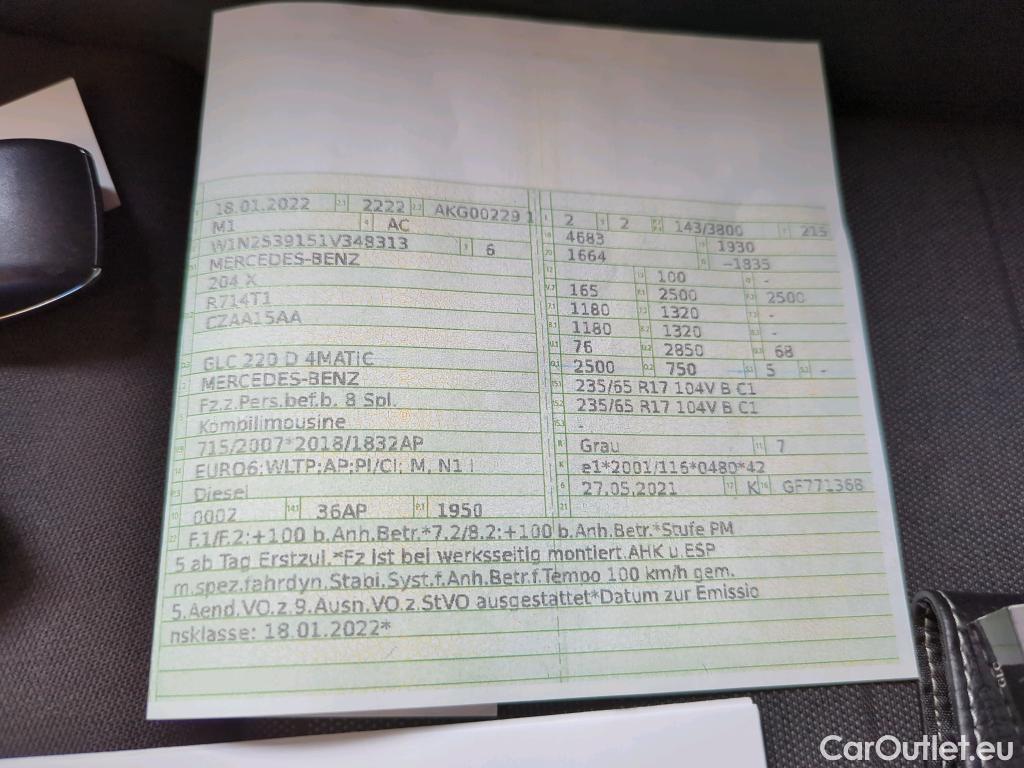 18.01.2022 2222 AKG00229 1
M1 AC
W1N2539151V348313 6
MERCEDES-BENZ
204 X
R714T1
CZAA15AA
GLC 220 D 4MATIC
MERCEDES-BENZ
Fz.z.Pers.bef.b. 8 Spl.
Kombilimousine
715/2007*2018/1832AP
EURO6;WLTP;AP;PI/CI; M, N1 I
Diesel
0002 36AP 1950
2 2 143/3800 215
4683 1930
1664 -1835
100 -
165 2500 2500
1180 1320 -
1180 1320 -
76 2850 68
2500 750 5 -
235/65 R17 104V B C1
235/65 R17 104V B C1
-
Grau 7
e1*2001/116*0480*42
27.05.2021 K GF771368
F.1/F.2:+100 b.Anh.Betr.*7.2/8.2:+100 b.Anh.Betr.*Stufe PM
5 ab Tag Erstzul.*Fz ist bei werksseitig montiert.AHK u.ESP
m.spez.fahrdyn.Stabi.Syst.f.Anh.Betr.f.Tempo 100 km/h gem.
5.Aend.VO.z.9.Ausn.VO.z.StVO ausgestattet*Datum zur Emissio
nsklasse: 18.01.2022*
CarOutlet.eu